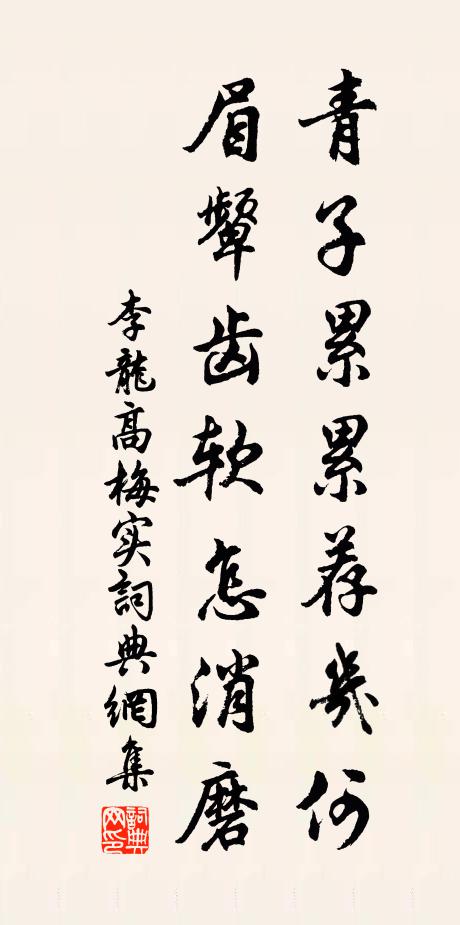 青子累累荐幾何
眉颦齿软怎消磨
李龍高梅实詞典網集
詞典网印